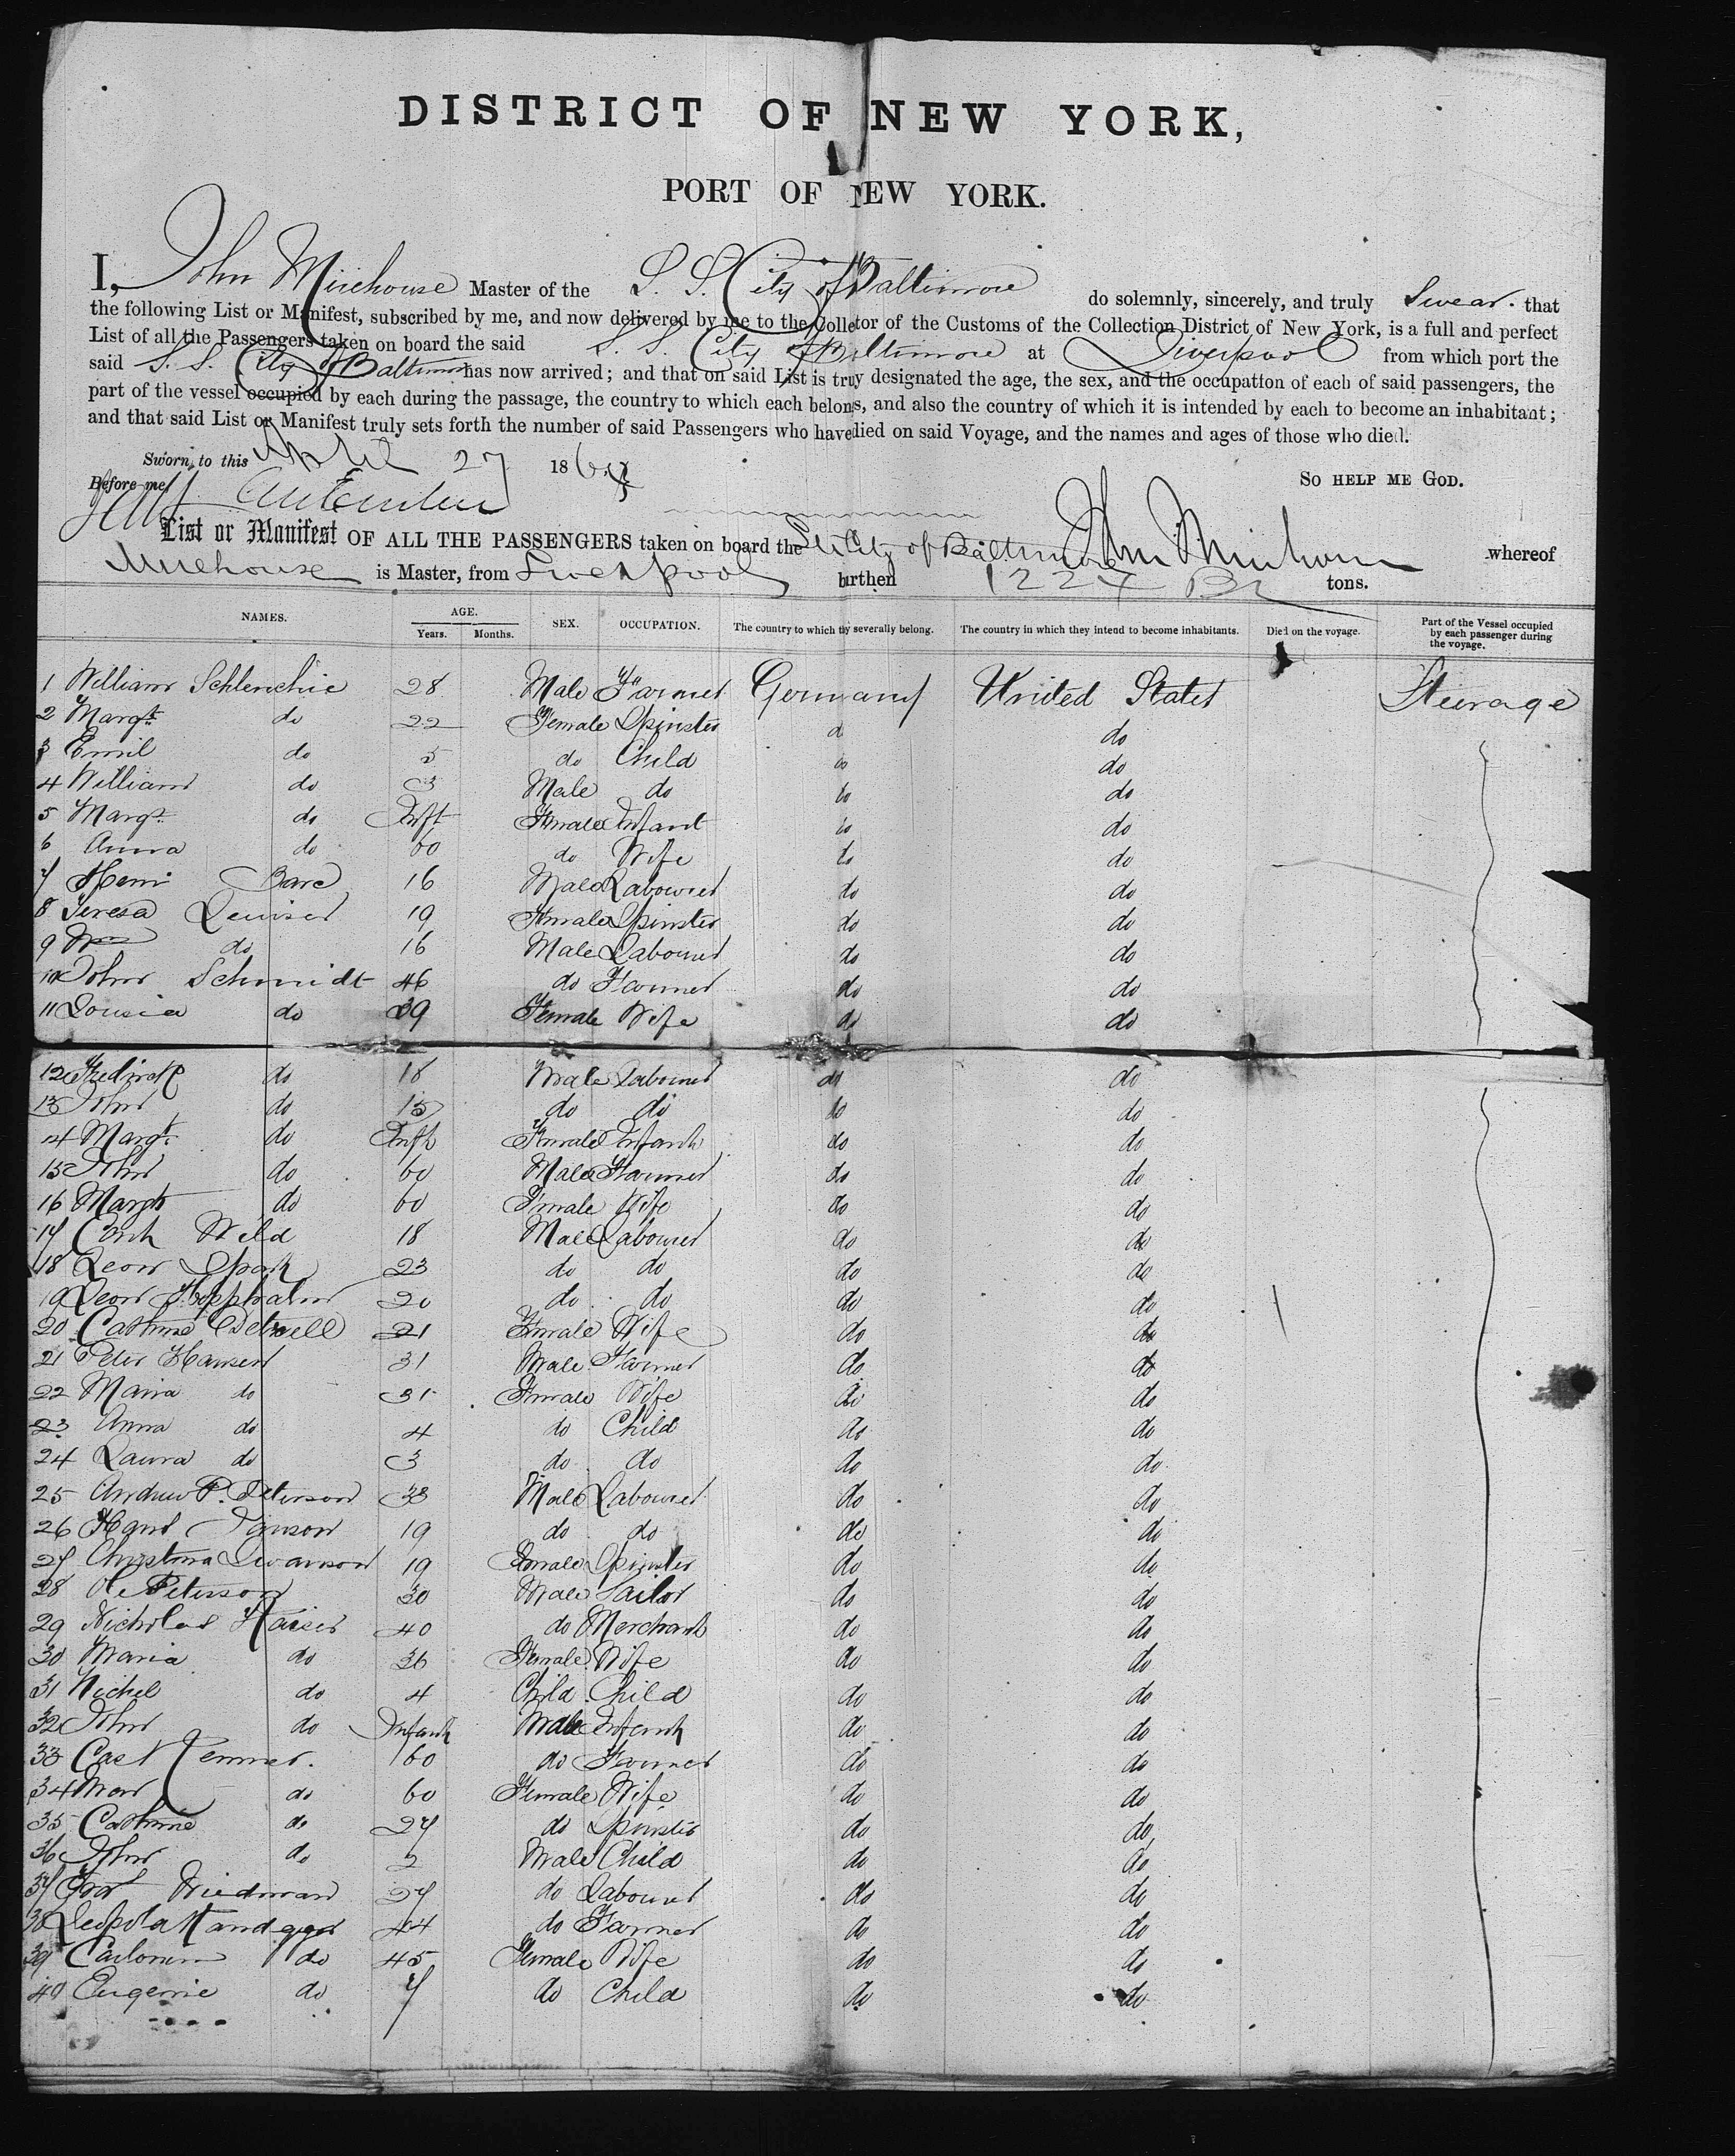 DISTRICT OF NEW YORK,
PORT OF NEW YORK.
I, John Mirehouse Master of the S. S. City of Baltimore do solemnly, sincerely, and truly Swear that
the following List or Manifest, subscribed by me, and now delivered by me to the Collector of the Customs of the Collection District of New York, is a full and perfect
List of all the Passengers taken on board the said S. S. City of Baltimore at Liverpool from which port the
said S. S. City of Baltimore has now arrived; and that on said List is truly designated the age, the sex, and the occupation of each of said passengers, the
part of the vessel occupied by each during the passage, the country to which each belongs, and also the country of which it is intended by each to become an inhabitant;
and that said List or Manifest truly sets forth the number of said Passengers who have died on said Voyage, and the names and ages of those who died.
Sworn to this April 27 186
So HELP ME GOD.
Before me
List or Manifest OF ALL THE PASSENGERS taken on board the City of Baltimore John Mirehouse whereof
Mirehouse is Master, from Liverpool burthen tons.
NAMES. AGE. Years. Months. SEX. OCCUPATION. The country to which they severally belong. The country in which they intend to become inhabitants. Died on the voyage. Part of the Vessel occupied by each passenger during the voyage.
1 William 28 Male Farmer Germany United States Steerage
2 Margt. do 22 Female Spinster do do
3 Emil do 5 do Child do do
4 William do 3 Male do do do
5 Margt. do Inft Female Infant do do
6 Anna do 60 do Wife do do
7 Henri Bare 16 Male Labourer do do
8 Teresa 19 Female Spinster do do
9 Wm do 16 Male Labourer do do
10 John Schmidt 46 do Farmer do do
11 Lousia do 39 Female Wife do do
12 Fredirck do 18 Male Labourer do do
13 John do 15 do do do do
14 Margt. do Inft Female Infant do do
15 John do 60 Male Farmer do do
16 Margt do 60 Female Wife do do
17 Wild 18 Male Labourer do do
18 Leon 23 do do do do
19 Leon 20 do do do do
20 Cathrine 21 Female Wife do do
21 Peter Hansen 31 Male Farmer do do
22 Maria do 31 Female Wife do do
23 Anna do 4 do Child do do
24 Laura do 3 do do do do
25 Andrew P. Peterson 33 Male Labourer do do
26 Hans 19 do do do do
27 Christina Swanson 19 Female Spinster do do
28 Ole Peterson 30 Male Sailor do do
29 Nicholas Kaiser 40 do Merchant do do
30 Maria do 36 Female Wife do do
31 Michel do 4 Child Child do do
32 John do Infant Male Infant do do
33 60 do Farmer do do
34 do 60 Female Wife do do
35 Cathrine do 27 do Spinster do do
36 John do 2 Male Child do do
37 Wiedman 27 do Labourer do do
38 Leopold 44 do Farmer do do
39 do 45 Female Wife do do
40 Eugenie do 7 do Child do do